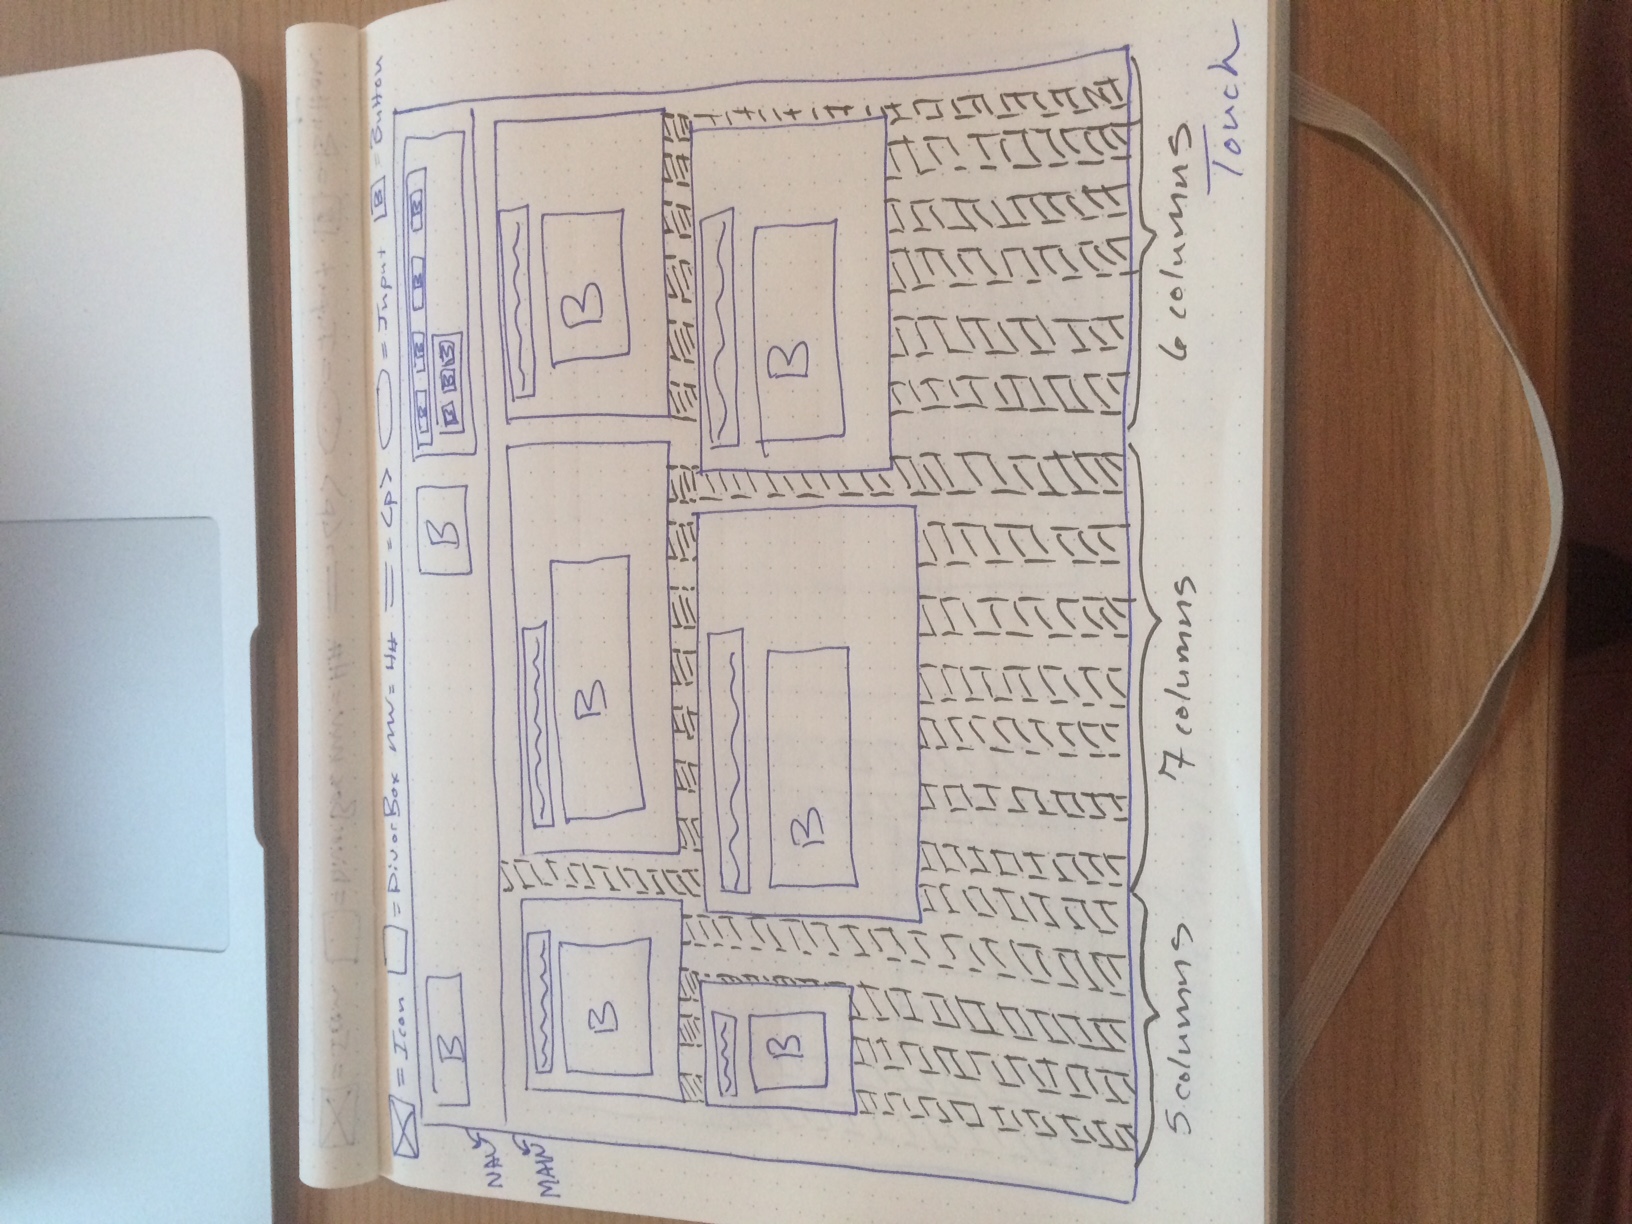 = Icon = DivorBox = H# = <p> = Input B = Button
B B B B B B
B B B
NAV
MAIN
B B B
B B B
5 columns 7 columns 6 columns
Touch